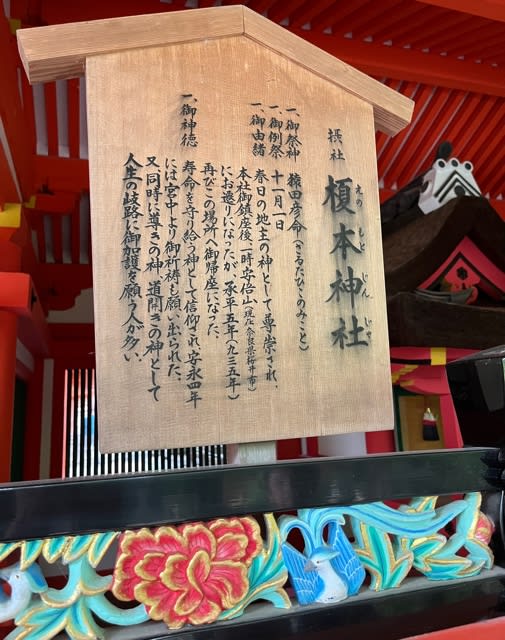 摂社
榎本神社
えのもとじんじゃ
一、御祭神 猿田彦命(さるたひこのみこと)
一、御例祭 十一月一日
一、御由緒 春日の地主の神として尊崇され、
本社御鎮座後、一時安倍山(現在奈良県桜井市)
にお遷りになったが、承平五年(九三五年)
再びこの場所へ御帰座になった。
一、御神徳 寿命を守り給う神として信仰され、安永四年
には宮中より御祈祷も願い出られた。
又、同時に導きの神、道開きの神として
人生の岐路に御加護を願う人が多い。